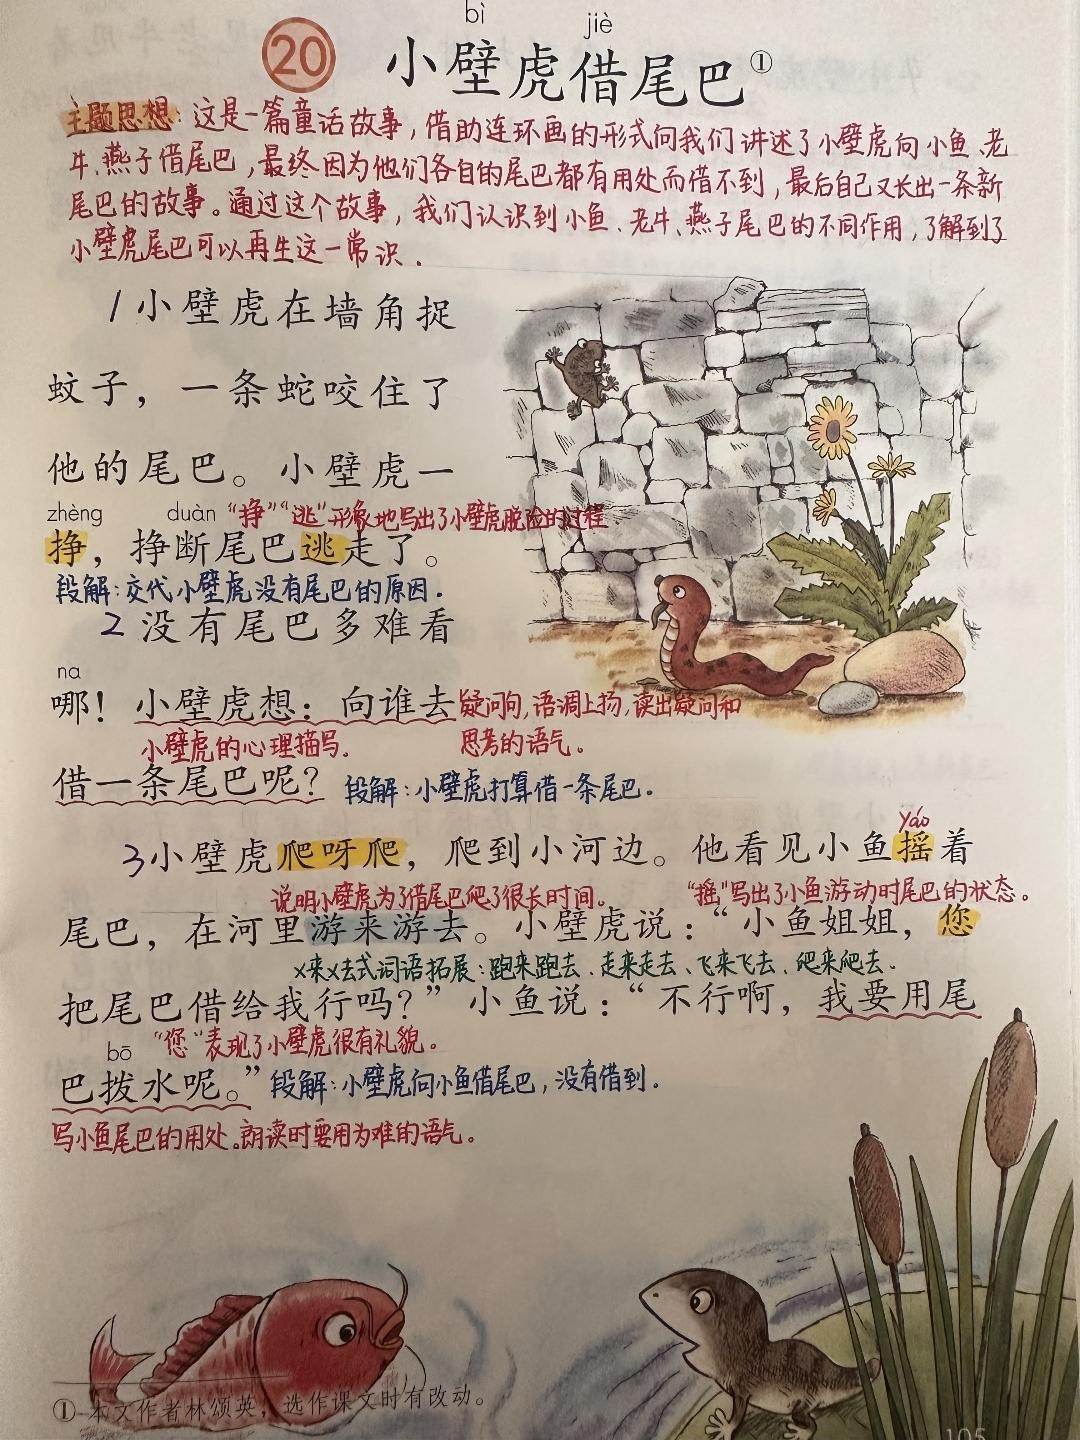 bì jiè
20 小壁虎借尾巴①
主题思想：这是一篇童话故事，借助连环画的形式向我们讲述了小壁虎向小鱼、老
牛、燕子借尾巴，最终因为他们各自的尾巴都有用处而借不到，最后自己又长出一条新
尾巴的故事。通过这个故事，我们认识到小鱼、老牛、燕子尾巴的不同作用，了解到了
小壁虎尾巴可以再生这一常识．
1小壁虎在墙角捉
蚊子，一条蛇咬住了
他的尾巴。小壁虎一
zhèng duàn “挣”“逃”形象地写出了小壁虎脱险的过程
挣，挣断尾巴逃走了。
段解：交代小壁虎没有尾巴的原因．
2没有尾巴多难看
na
哪！小壁虎想：向谁去 疑问句，语调上扬，读出疑问和
小壁虎的心理描写。 思考的语气。
借一条尾巴呢？ 段解：小壁虎打算借一条尾巴．
yáo
3小壁虎爬呀爬，爬到小河边。他看见小鱼摇着
说明小壁虎为了借尾巴爬了很长时间。 “摇”写出了小鱼游动时尾巴的状态。
尾巴，在河里游来游去。小壁虎说：“小鱼姐姐，您
X来X去式词语拓展：跑来跑去、走来走去、飞来飞去、爬来爬去．
把尾巴借给我行吗？”小鱼说：“不行啊，我要用尾
bō “您”表现了小壁虎很有礼貌。
巴拨水呢。” 段解：小壁虎向小鱼借尾巴，没有借到．
写小鱼尾巴的用处。朗读时要用为难的语气。
① 本文作者林颂英，选作课文时有改动。
105